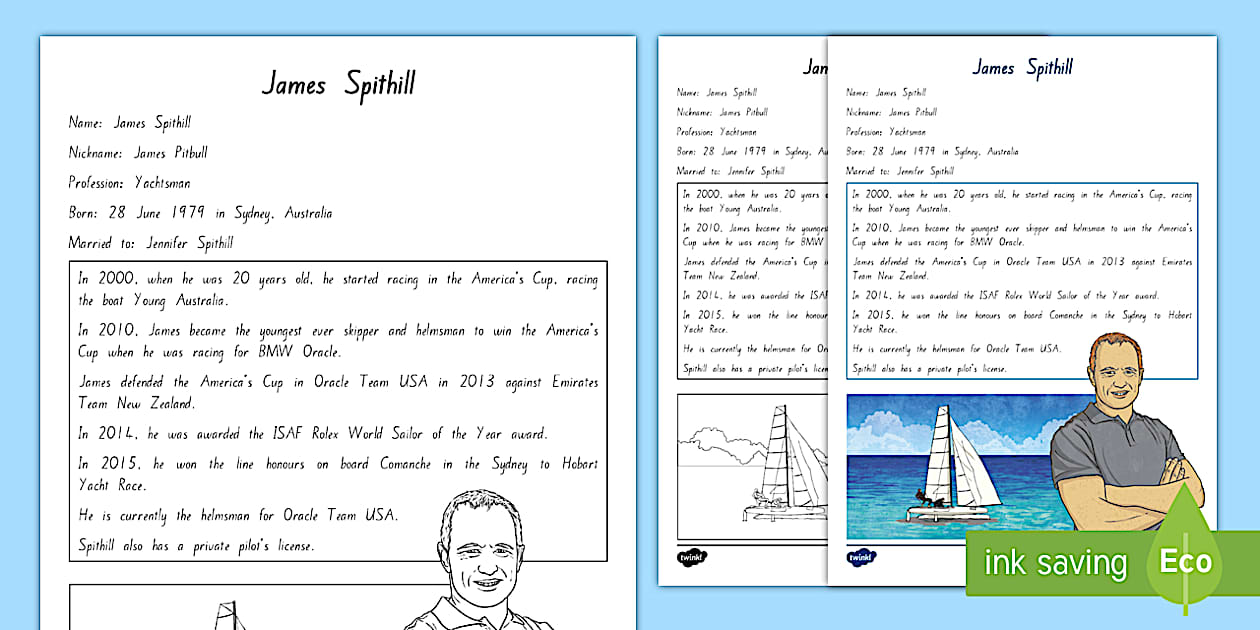 James Spithill
Name: James Spithill
Nickname: James Pitbull
Profession: Yachtsman
Born: 28 June 1979 in Sydney, Australia
Married to: Jennifer Spithill
In 2000, when he was 20 years old, he started racing in the America's Cup, racing
the boat Young Australia.
In 2010, James became the youngest ever skipper and helmsman to win the America's
Cup when he was racing for BMW Oracle.
James defended the America's Cup in Oracle Team USA in 2013 against Emirates
Team New Zealand.
In 2014, he was awarded the ISAF Rolex World Sailor of the Year award.
In 2015, he won the line honours on board Comanche in the Sydney to Hobart
Yacht Race.
He is currently the helmsman for Oracle Team USA.
Spithill also has a private pilot's license.
Jam
Name: James Spithill
Nickname: James Pitbull
Profession: Yachtsman
Born: 28 June 1979 in Sydney, Au
Married to: Jennifer Spithill
In 2000, when he was 20 years
the boat Young Australia.
In 2010, James became the youngest
Cup when he was racing for BMW
James defended the America's Cup
Team New Zealand.
In 2014, he was awarded the ISAF
In 2015, he won the line honour
Yacht Race.
He is currently the helmsman for Or
Spithill also has a private pilot's licen
twinkl
James Spithill
Name: James Spithill
Nickname: James Pitbull
Profession: Yachtsman
Born: 28 June 1979 in Sydney, Australia
Married to: Jennifer Spithill
In 2000, when he was 20 years old, he started racing in the America's Cup, racing
the boat Young Australia.
In 2010, James became the youngest ever skipper and helmsman to win the America's
Cup when he was racing for BMW Oracle.
James defended the America's Cup in Oracle Team USA in 2013 against Emirates
Team New Zealand.
In 2014, he was awarded the ISAF Rolex World Sailor of the Year award.
In 2015, he won the line honours on board Comanche in the Sydney to Hobart
Yacht Race.
He is currently the helmsman for Oracle Team USA.
Spithill also has a private pilot's license.
twinkl
ink saving Eco